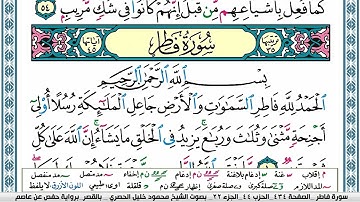 كَمَا فُعِلَ بِأَشْيَاعِهِم مِّن قَبْلُ إِنَّهُمْ كَانُوا۟ فِى شَكٍّ مُّرِيبٍ ٥٤
سُورَةُ فَاطِرٍ
بِسْمِ ٱللَّهِ ٱلرَّحْمَٰنِ ٱلرَّحِيمِ
ٱلْحَمْدُ لِلَّهِ فَاطِرِ ٱلسَّمَٰوَٰتِ وَٱلْأَرْضِ جَاعِلِ ٱلْمَلَٰٓئِكَةِ رُسُلًا أُو۟لِىٓ
أَجْنِحَةٍ مَّثْنَىٰ وَثُلَٰثَ وَرُبَٰعَ يَزِيدُ فِى ٱلْخَلْقِ مَا يَشَآءُ إِنَّ ٱللَّهَ عَلَىٰ كُلِّ
سورة فاطر الصفحة ٤٣٤ الجزء ٢٢ الحزب ٤٤ بصوت الشيخ محمود خليل الحصري بالقصر برواية حفص عن عاصم